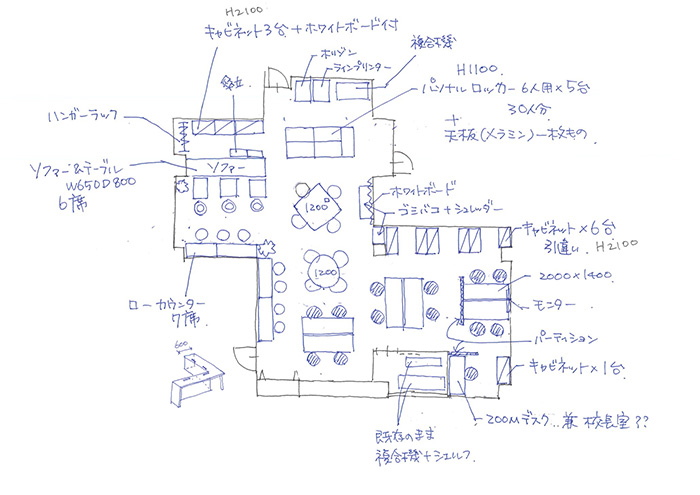 H2100
キャビネット3台+ホワイトボード付
傘立
ハンガーラック
ソファー&テーブル
W650D800
6席
ソファー
ローカウンター
7席
600
ラインプリンター
複合機
H1100
パーソナルロッカー 6人用×5台
30人分
+
天板(メラミン)一枚もの
ホワイトボード
ゴミバコ+シュレッダー
キャビネット×6台
引違い H2100
2000×1400
モニター
パーティション
キャビネット×1台
1200
1200
既存のまま
複合機+シェルフ
兼 校長室??